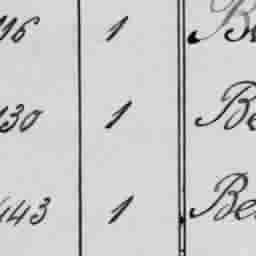 96 1 B
130 1 Be
443 1 Be